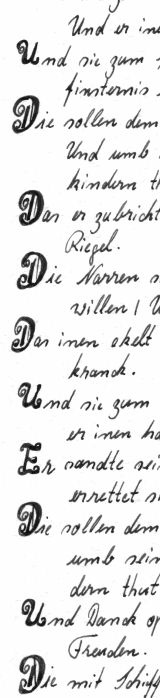 Und er ine
Und sie zum
finsternis
Die sollen dem
Und umb
kindern th
Das er zubricht
Riegel.
Die Narren
willen / U
Das inen ekelt
kranck.
Und sie zum
er inen ha
Er sandte sein
errettet si
Die sollen dem
umb sein
dern thut
Und Danck op
Freuden.
Die mit Schiff